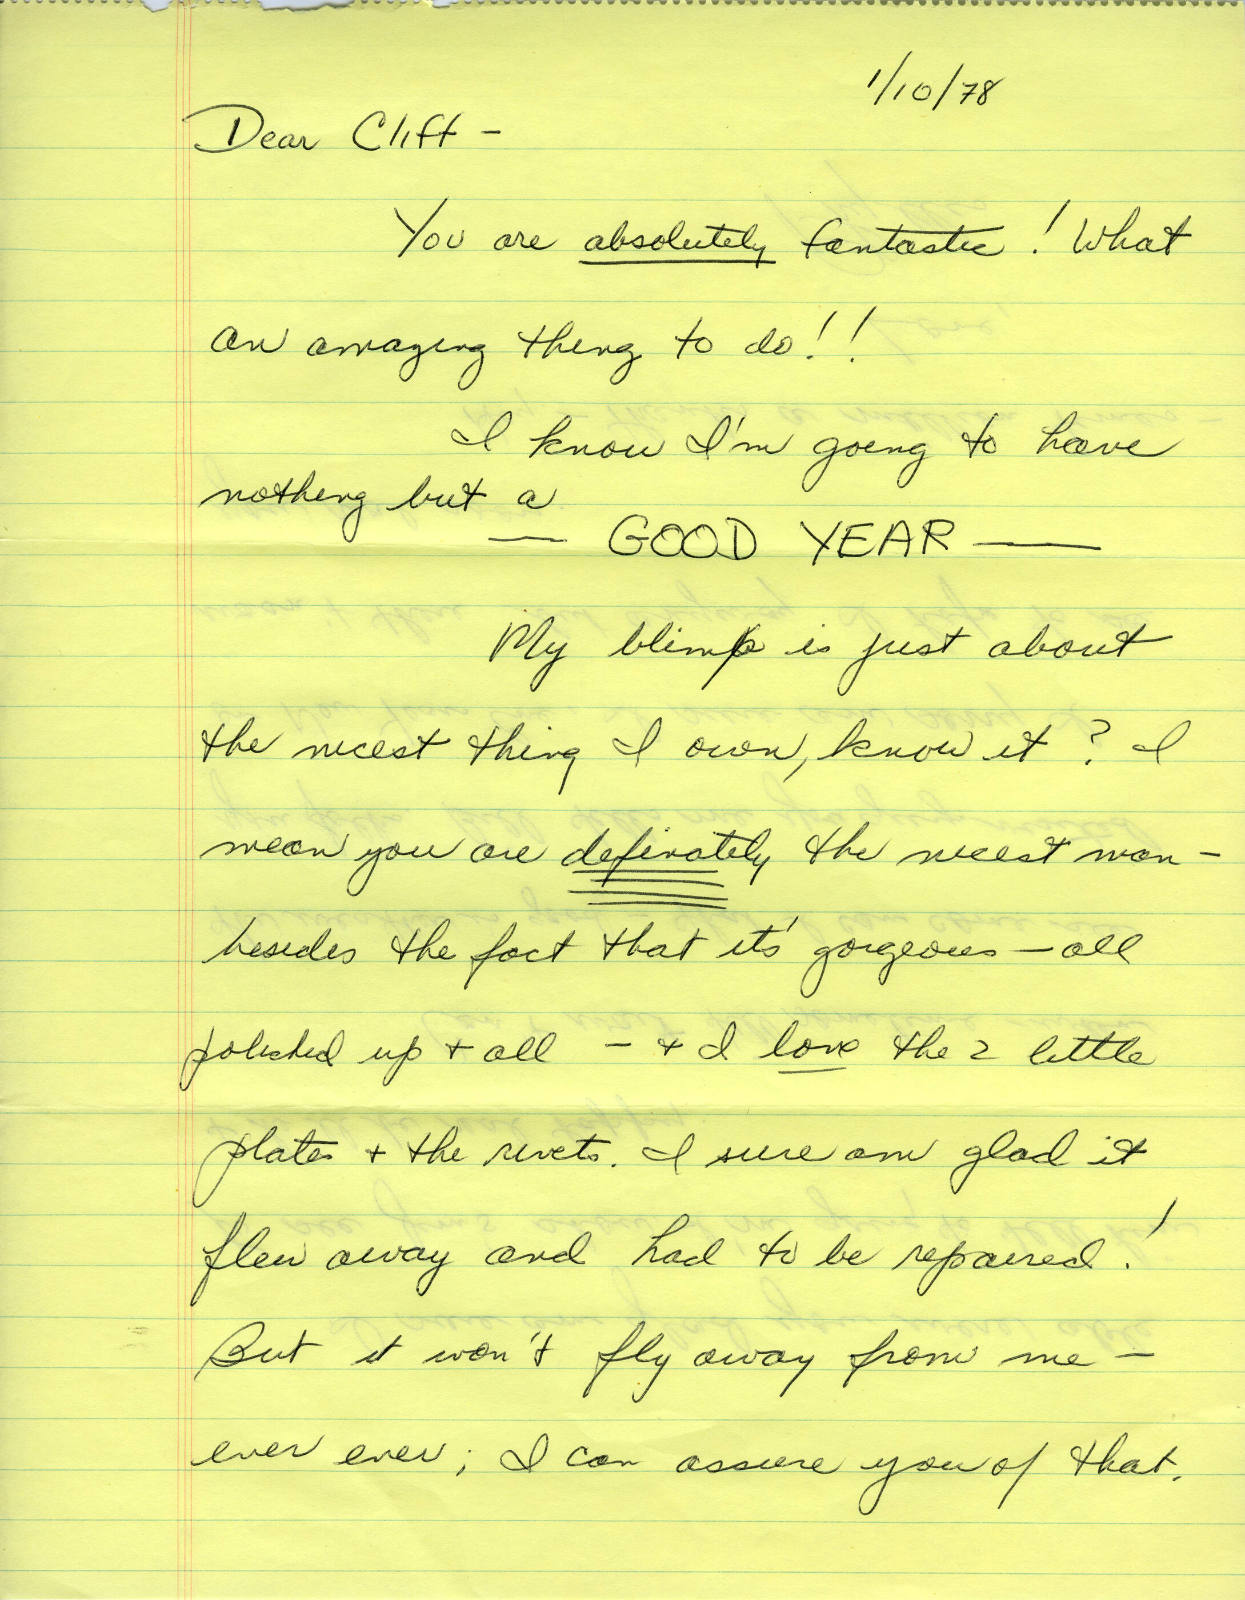 1/10/78
Dear Clift -
You are absolutely fantastic! What
an amazing thing to do!!
I know I'm going to have
nothing but a
— GOOD YEAR —
My blimp is just about
the nicest thing I own, know it? I
mean you are definately the nicest man -
besides the fact that it's gorgeous - all
polished up + all - + I love the 2 little
plates + the rivets. I sure am glad it
flew away and had to be repaired!
But it won't fly away from me -
ever ever; I can assure you of that.